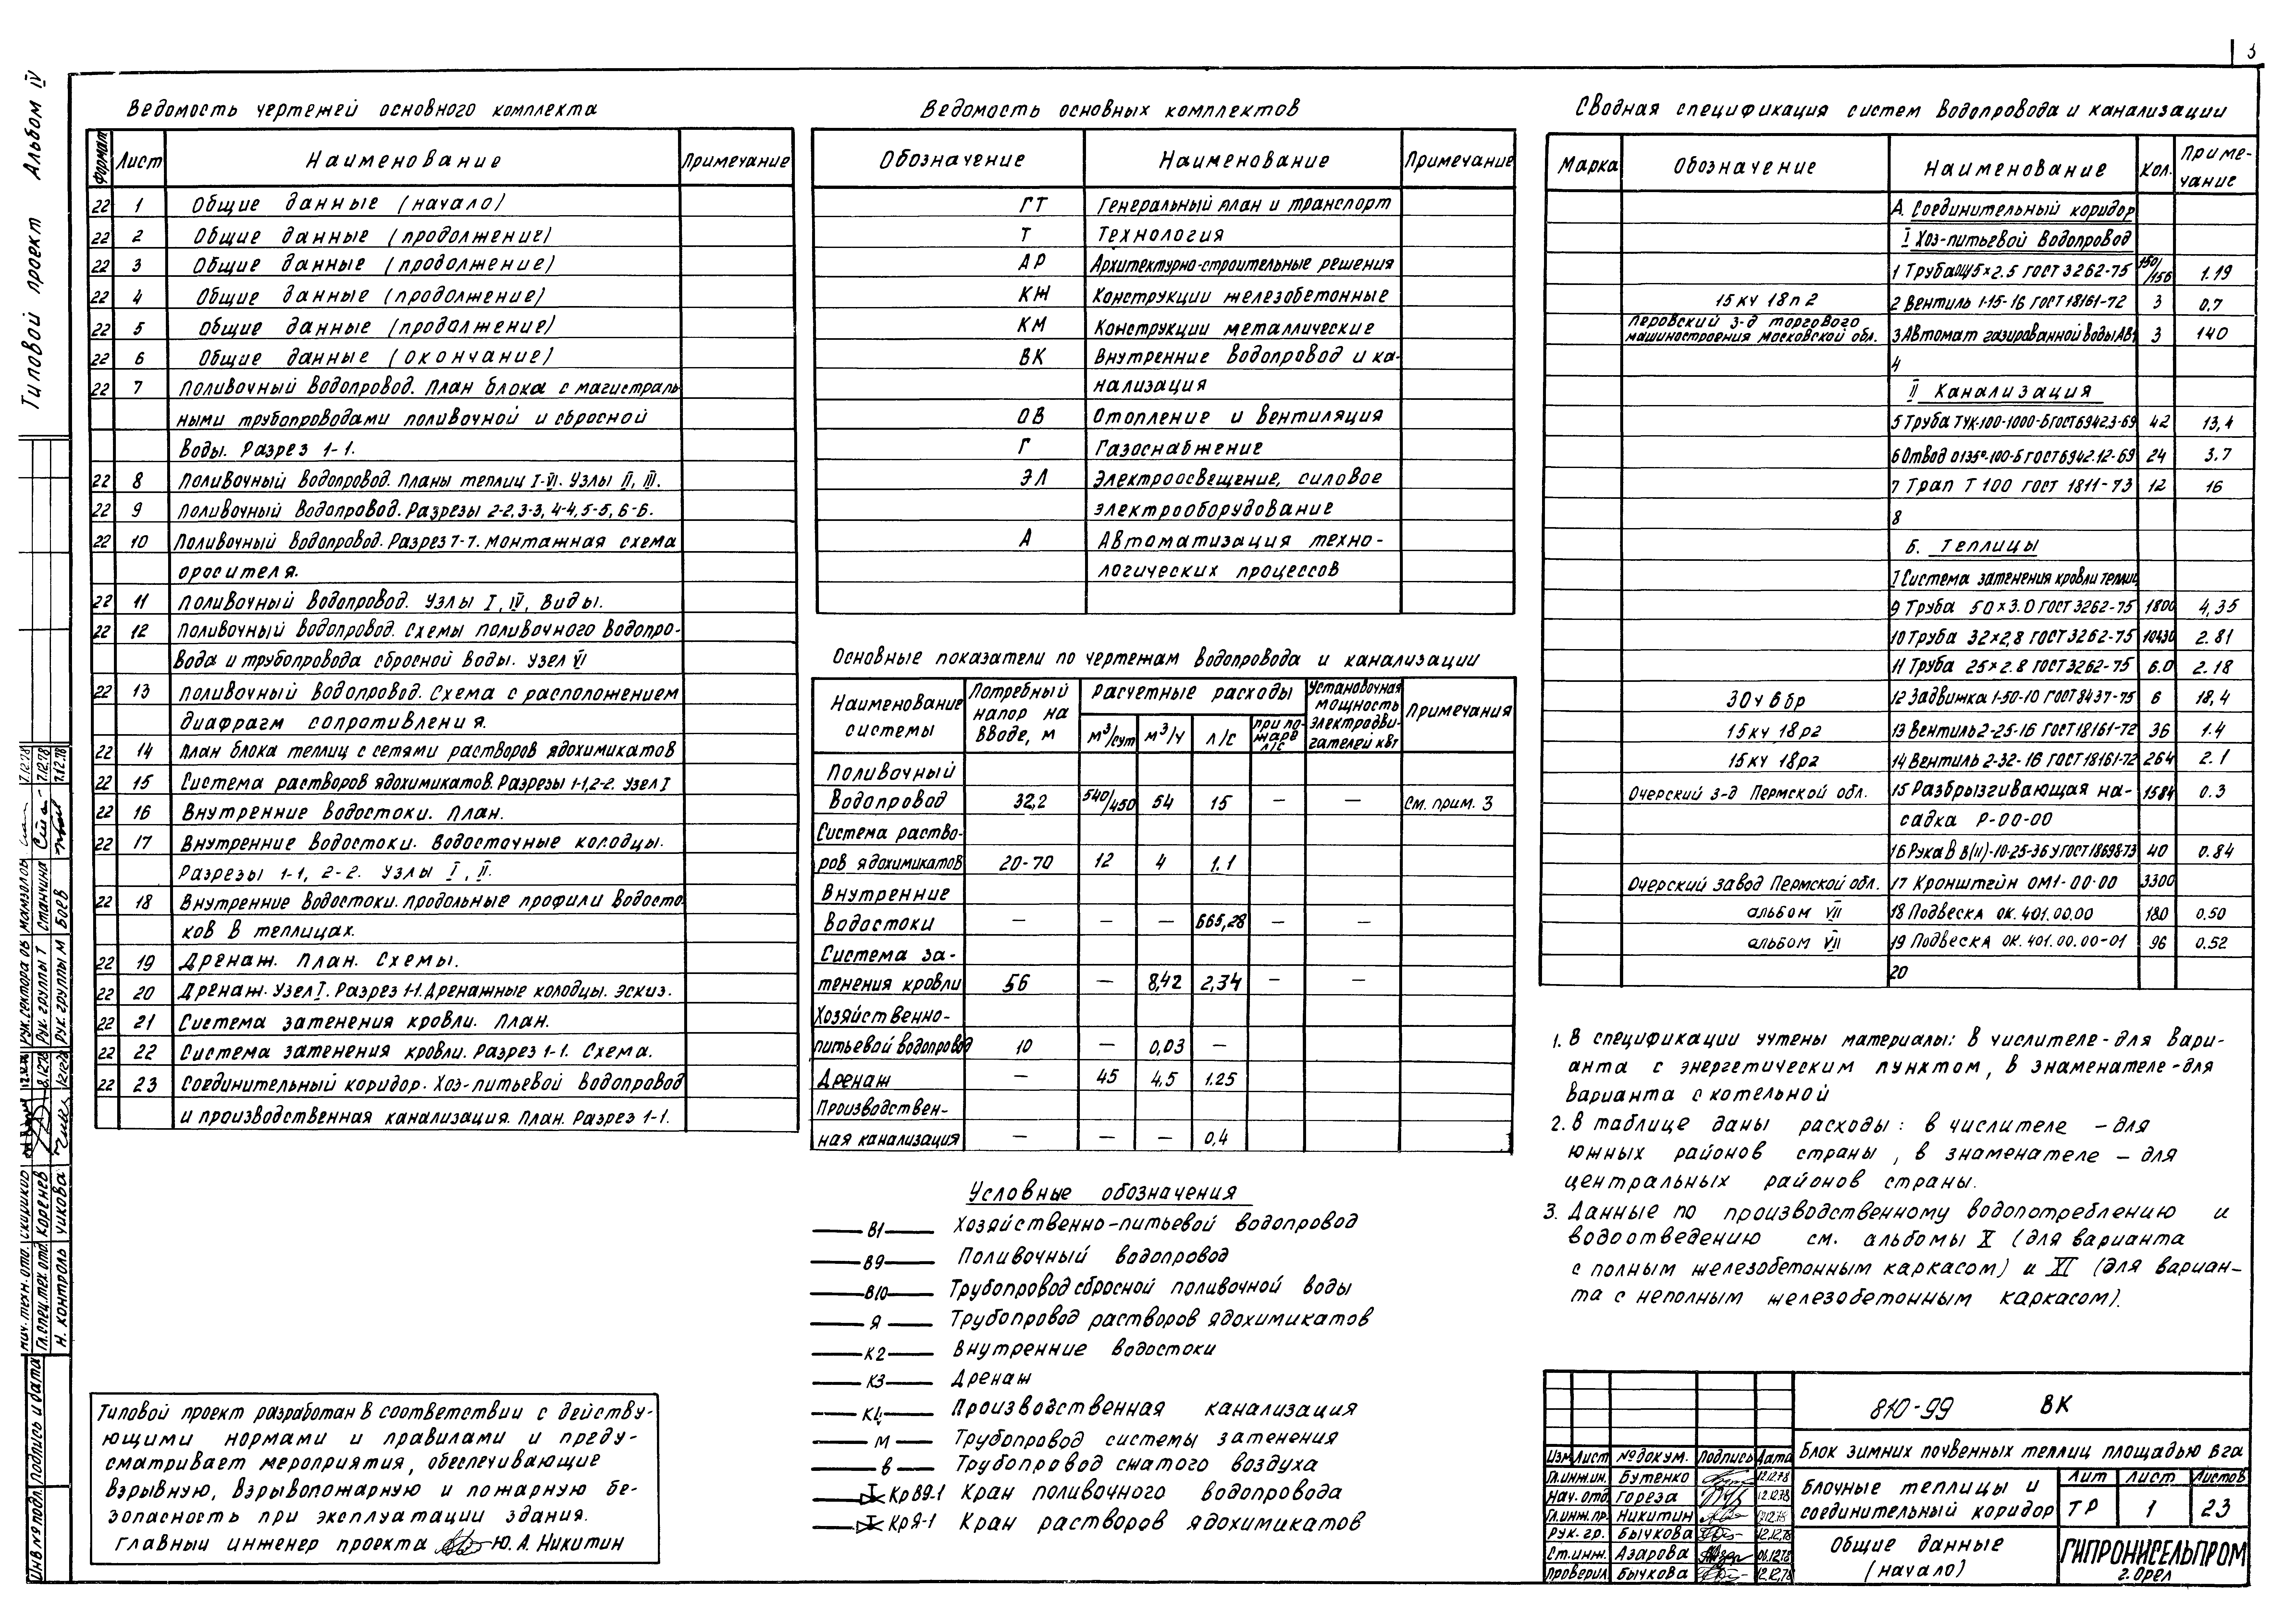 3
Типовой проект Альбом IV
Ведомость чертежей основного комплекта
Формат Лист Наименование Примечание
22 1 Общие данные (начало)
22 2 Общие данные (продолжение)
22 3 Общие данные (продолжение)
22 4 Общие данные (продолжение)
22 5 Общие данные (продолжение)
22 6 Общие данные (окончание)
22 7 Поливочный водопровод. План блока с магистраль
ными трубопроводами поливочной и сбросной
воды. Разрез 1-1.
22 8 Поливочный водопровод. Планы теплиц I-VI. Узлы II, III.
22 9 Поливочный водопровод. Разрезы 2-2, 3-3, 4-4, 5-5, 6-6.
22 10 Поливочный водопровод. Разрез 7-7. Монтажная схема
оросителя.
22 11 Поливочный водопровод. Узлы I, IV, Виды.
22 12 Поливочный водопровод. Схемы поливочного водопро-
вода и трубопровода сбросной воды. Узел VI
22 13 Поливочный водопровод. Схема с расположением
диафрагм сопротивления.
22 14 План блока теплиц с сетями растворов ядохимикатов
22 15 Система растворов ядохимикатов. Разрезы 1-1, 2-2. Узел I
22 16 Внутренние водостоки. План.
22 17 Внутренние водостоки. Водосточные колодцы.
Разрезы 1-1, 2-2. Узлы I, II.
22 18 Внутренние водостоки. Продольные профили водосто
ков в теплицах.
22 19 Дренаж. План. Схемы.
22 20 Дренаж. Узел I. Разрез 1-1. Дренажные колодцы. Эскиз.
22 21 Система затенения кровли. План.
22 22 Система затенения кровли. Разрез 1-1. Схема.
22 23 Соединительный коридор. Хоз-питьевой водопровод
и производственная канализация. План. Разрез 1-1.
Типовой проект разработан в соответствии с действу-
ющими нормами и правилами и преду-
сматривает мероприятия, обеспечивающие
взрывную, взрывопожарную и пожарную бе-
зопасность при эксплуатации здания.
Главный инженер проекта Ю. А. Никитин
Ведомость основных комплектов
Обозначение Наименование Примечание
ГТ Генеральный план и транспорт
Т Технология
АР Архитектурно-строительные решения
КЖ Конструкции железобетонные
КМ Конструкции металлические
ВК Внутренние водопровод и ка-
нализация
ОВ Отопление и вентиляция
Г Газоснабжение
ЭЛ Электроосвещение, силовое
электрооборудование
А Автоматизация техно-
логических процессов
Основные показатели по чертежам водопровода и канализации
Наименование системы Потребный напор на вводе, м Расчетные расходы Установочная мощность электродви-гателей квт Примечания
м³/сут м³/ч л/с при по-жаре л/с
Поливочный
водопровод 32,2 540/450 54 15 — — См. прим. 3
Система раство-
ров ядохимикатов 20-70 12 4 1.1
Внутренние
водостоки — — — 665,28 — —
Система за-
тенения кровли 56 — 8,42 2,34 — —
Хозяйственно-
питьевой водопровод 10 — 0,03 —
Дренаж — 45 4.5 1.25
Производствен-
ная канализация — — — 0,4
Условные обозначения
В1 Хозяйственно-питьевой водопровод
В9 Поливочный водопровод
В10 Трубопровод сбросной поливочной воды
Я Трубопровод растворов ядохимикатов
К2 Внутренние водостоки
К3 Дренаж
К4 Производственная канализация
М Трубопровод системы затенения
в Трубопровод сжатого воздуха
КрВ9-1 Кран поливочного водопровода
КрЯ-1 Кран растворов ядохимикатов
Сводная спецификация систем водопровода и канализации
Марка Обозначение Наименование Кол. Приме-чание
А. Соединительный коридор
I Хоз-питьевой водопровод
1 Труба 15×2.5 ГОСТ 3262-75 150/156 1.19
15кч 18п2 2 Вентиль 1-15-16 ГОСТ 18161-72 3 0,7
Перовский з-д торгового машиностроения Московской обл. 3 Автомат газированной воды АВ1 3 140
4
II Канализация
5 Труба ТЧК-100-1000-Б ГОСТ 6942.3-69 42 13,4
6 Отвод О135°-100-Б ГОСТ 6942.12-69 24 3.7
7 Трап Т 100 ГОСТ 1811-73 12 16
8
Б. Теплицы
I Система затенения кровли теплиц
9 Труба 50×3.0 ГОСТ 3262-75 1800 4,35
10 Труба 32×2,8 ГОСТ 3262-75 10430 2.81
11 Труба 25×2.8 ГОСТ 3262-75 6.0 2.18
30ч 6бр 12 Задвижка 1-50-10 ГОСТ 8437-75 6 18,4
15кч 18р2 13 Вентиль 2-25-16 ГОСТ 18161-72 36 1.4
15кч 18р2 14 Вентиль 2-32-16 ГОСТ 18161-72 264 2.1
Очерский з-д Пермской обл. 15 Разбрызгивающая на- 1584 0.3
садка Р-00-00
16 Рукав В(II)-10-25-36 У ГОСТ 18698-73 40 0.84
Очерский завод Пермской обл. 17 Кронштейн ОМ1-00-00 3300
альбом VII 18 Подвеска ОК.401.00.00 180 0.50
альбом VII 19 Подвеска ОК.401.00.00-01 96 0.52
20
1. В спецификации учтены материалы: в числителе - для вари-
анта с энергетическим пунктом, в знаменателе - для
варианта с котельной
2. В таблице даны расходы: в числителе - для
южных районов страны, в знаменателе - для
центральных районов страны.
3. Данные по производственному водопотреблению и
водоотведению см. альбомы X (для варианта
с полным железобетонным каркасом) и XI (для вариан-
та с неполным железобетонным каркасом).
810-99 ВК
Изм. Лист № докум. Подпись Дата
Гл.инж.ин. Бутенко 12.12.78
Нач. отд. Гореза 12.12.78
Гл.инж.пр. Никитин 12.12.78
Рук. гр. Бычкова 12.12.78
Ст.инж. Азарова 06.12.78
Проверил Бычкова 12.12.78
Блок зимних почвенных теплиц площадью 6 га
Блочные теплицы и
соединительный коридор
Лит Лист Листов
ТР 1 23
Общие данные
(начало)
ГИПРОНИСЕЛЬПРОМ
г. Орел
Рук. сектора ОВ Мамзолов 7.12.78
Рук. группы Т Станчина 7.12.78
Рук. группы М Боев 7.12.78
Нач. техн. отд. Скирико
Гл. спец. тех. отд. Коренев 8.12.78
Н. контроль Чикова
Инв № подл. Подпись и дата